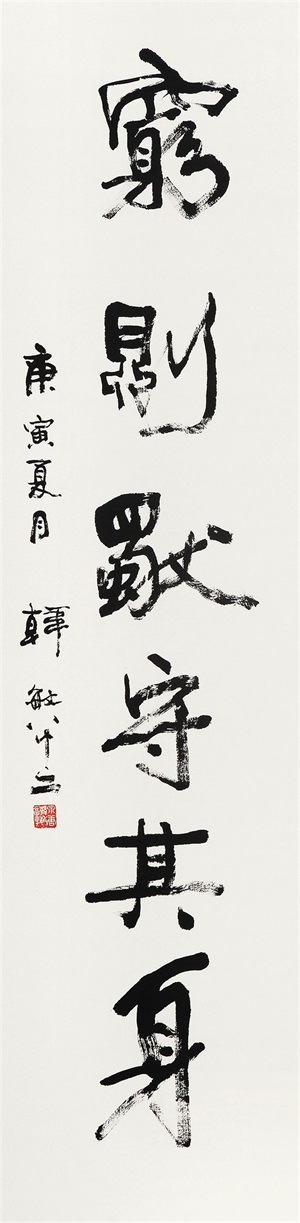 窮則獨守其身
庚寅夏月 韓敏八十二